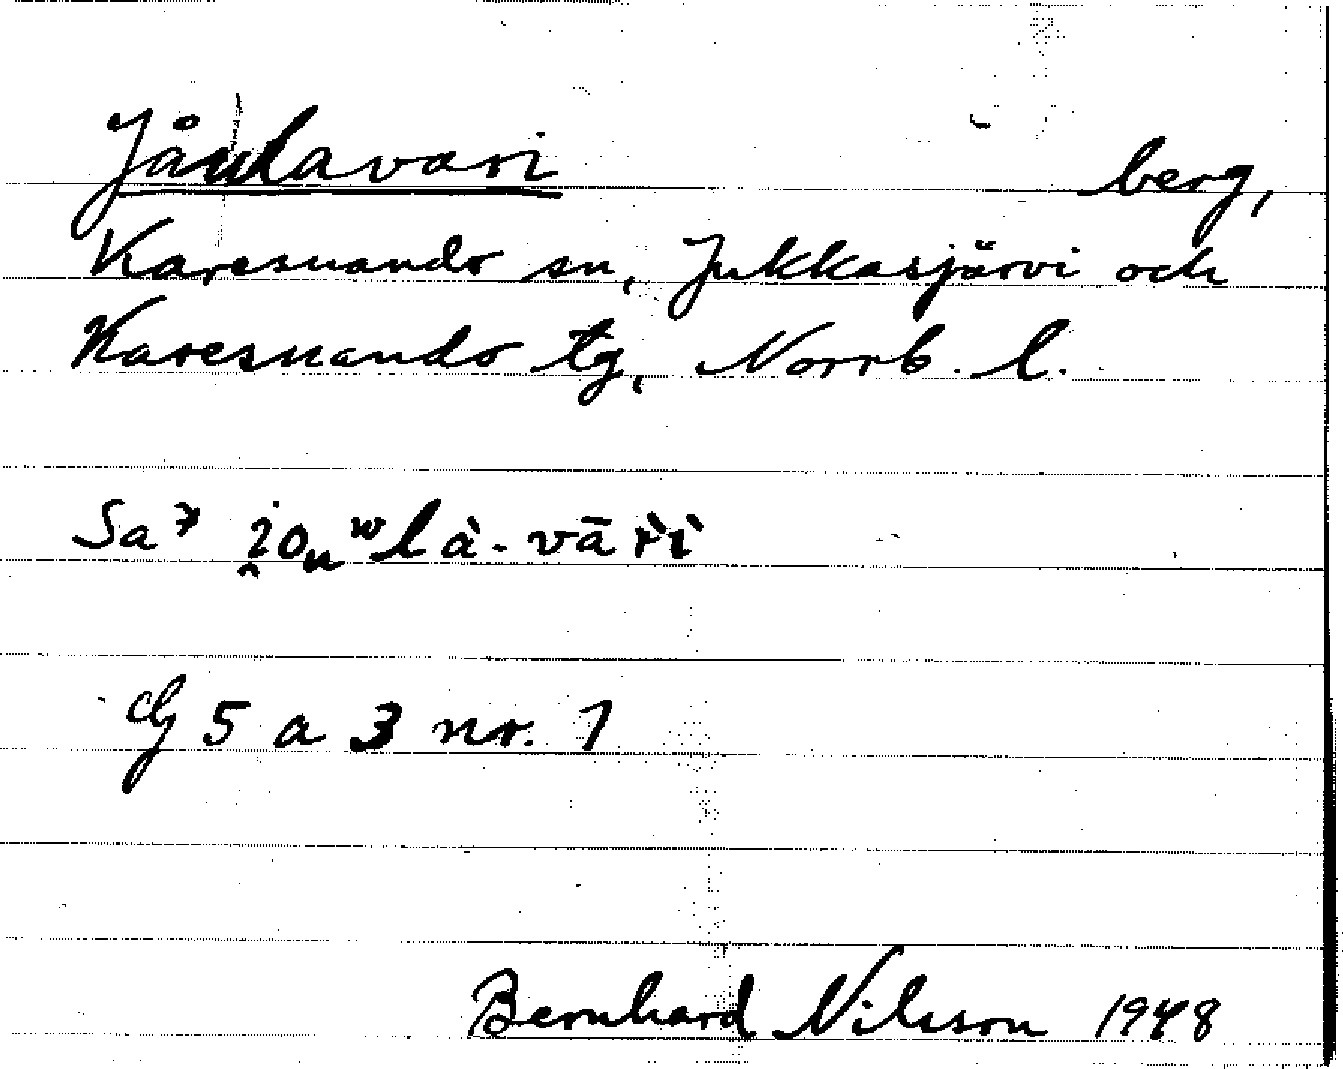 Jåulavari berg,
Karesuando sn, Jukkasjärvi och
Karesuando tg, Norrb. l.
Sa
G 5 a 3 nr. 1
Bernhard Nilsson 1948